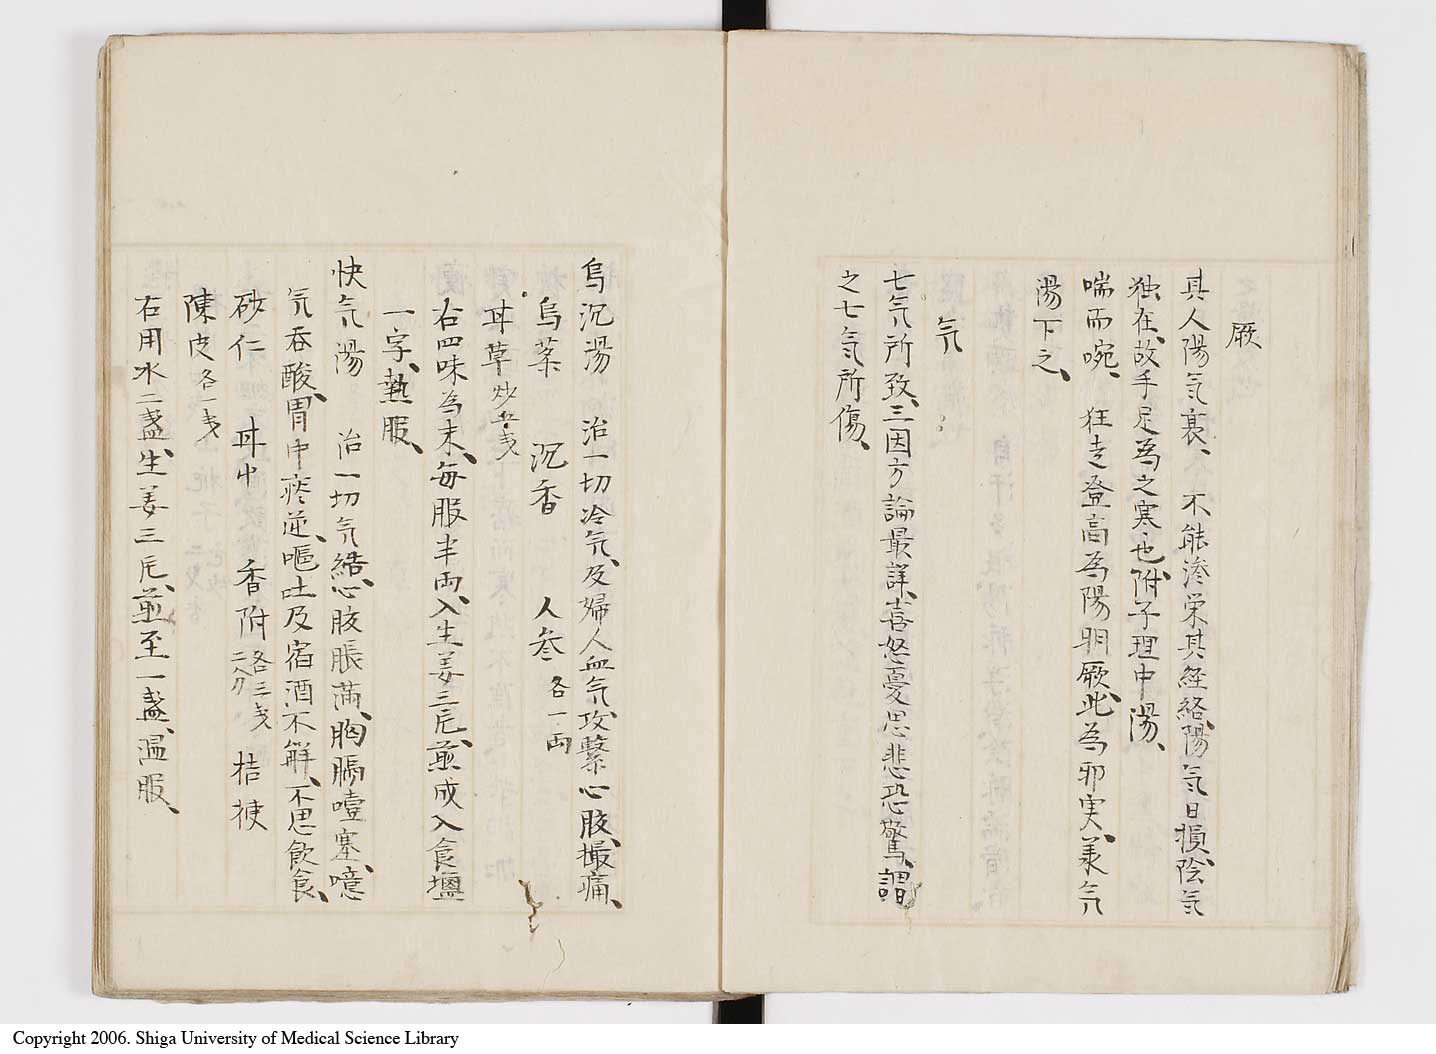 厥
其人陽気衰、不能滲栄其経絡、陽気日損、陰気
独在、故手足為之寒也、附子理中湯、
喘而啘、狂走登高為陽明厥、此為邪実、羕気
湯下之、
気
七気所致、三因方論最詳、喜怒憂思悲恐驚、謂
之七気所傷、
烏沉湯 治一切冷気、及婦人血気、攻繫心腹、撮痛、
烏薬 沉香 人参 各一両
甘草 炒五戋
右四味為末、毎服半両、入生姜三片、煎成入食塩
一字、熱服、
快気湯 治一切気結、心腹脹満、胸膈噎塞、噫
気吞酸、胃中痰逆、嘔吐及宿酒不解、不思飲食、
砂仁 甘中 香附 各三戋二八刀 桔梗
陳皮 各一戋
右用水二盞、生姜三片、煎至一盞、温服、
Copyright 2006. Shiga University of Medical Science Library